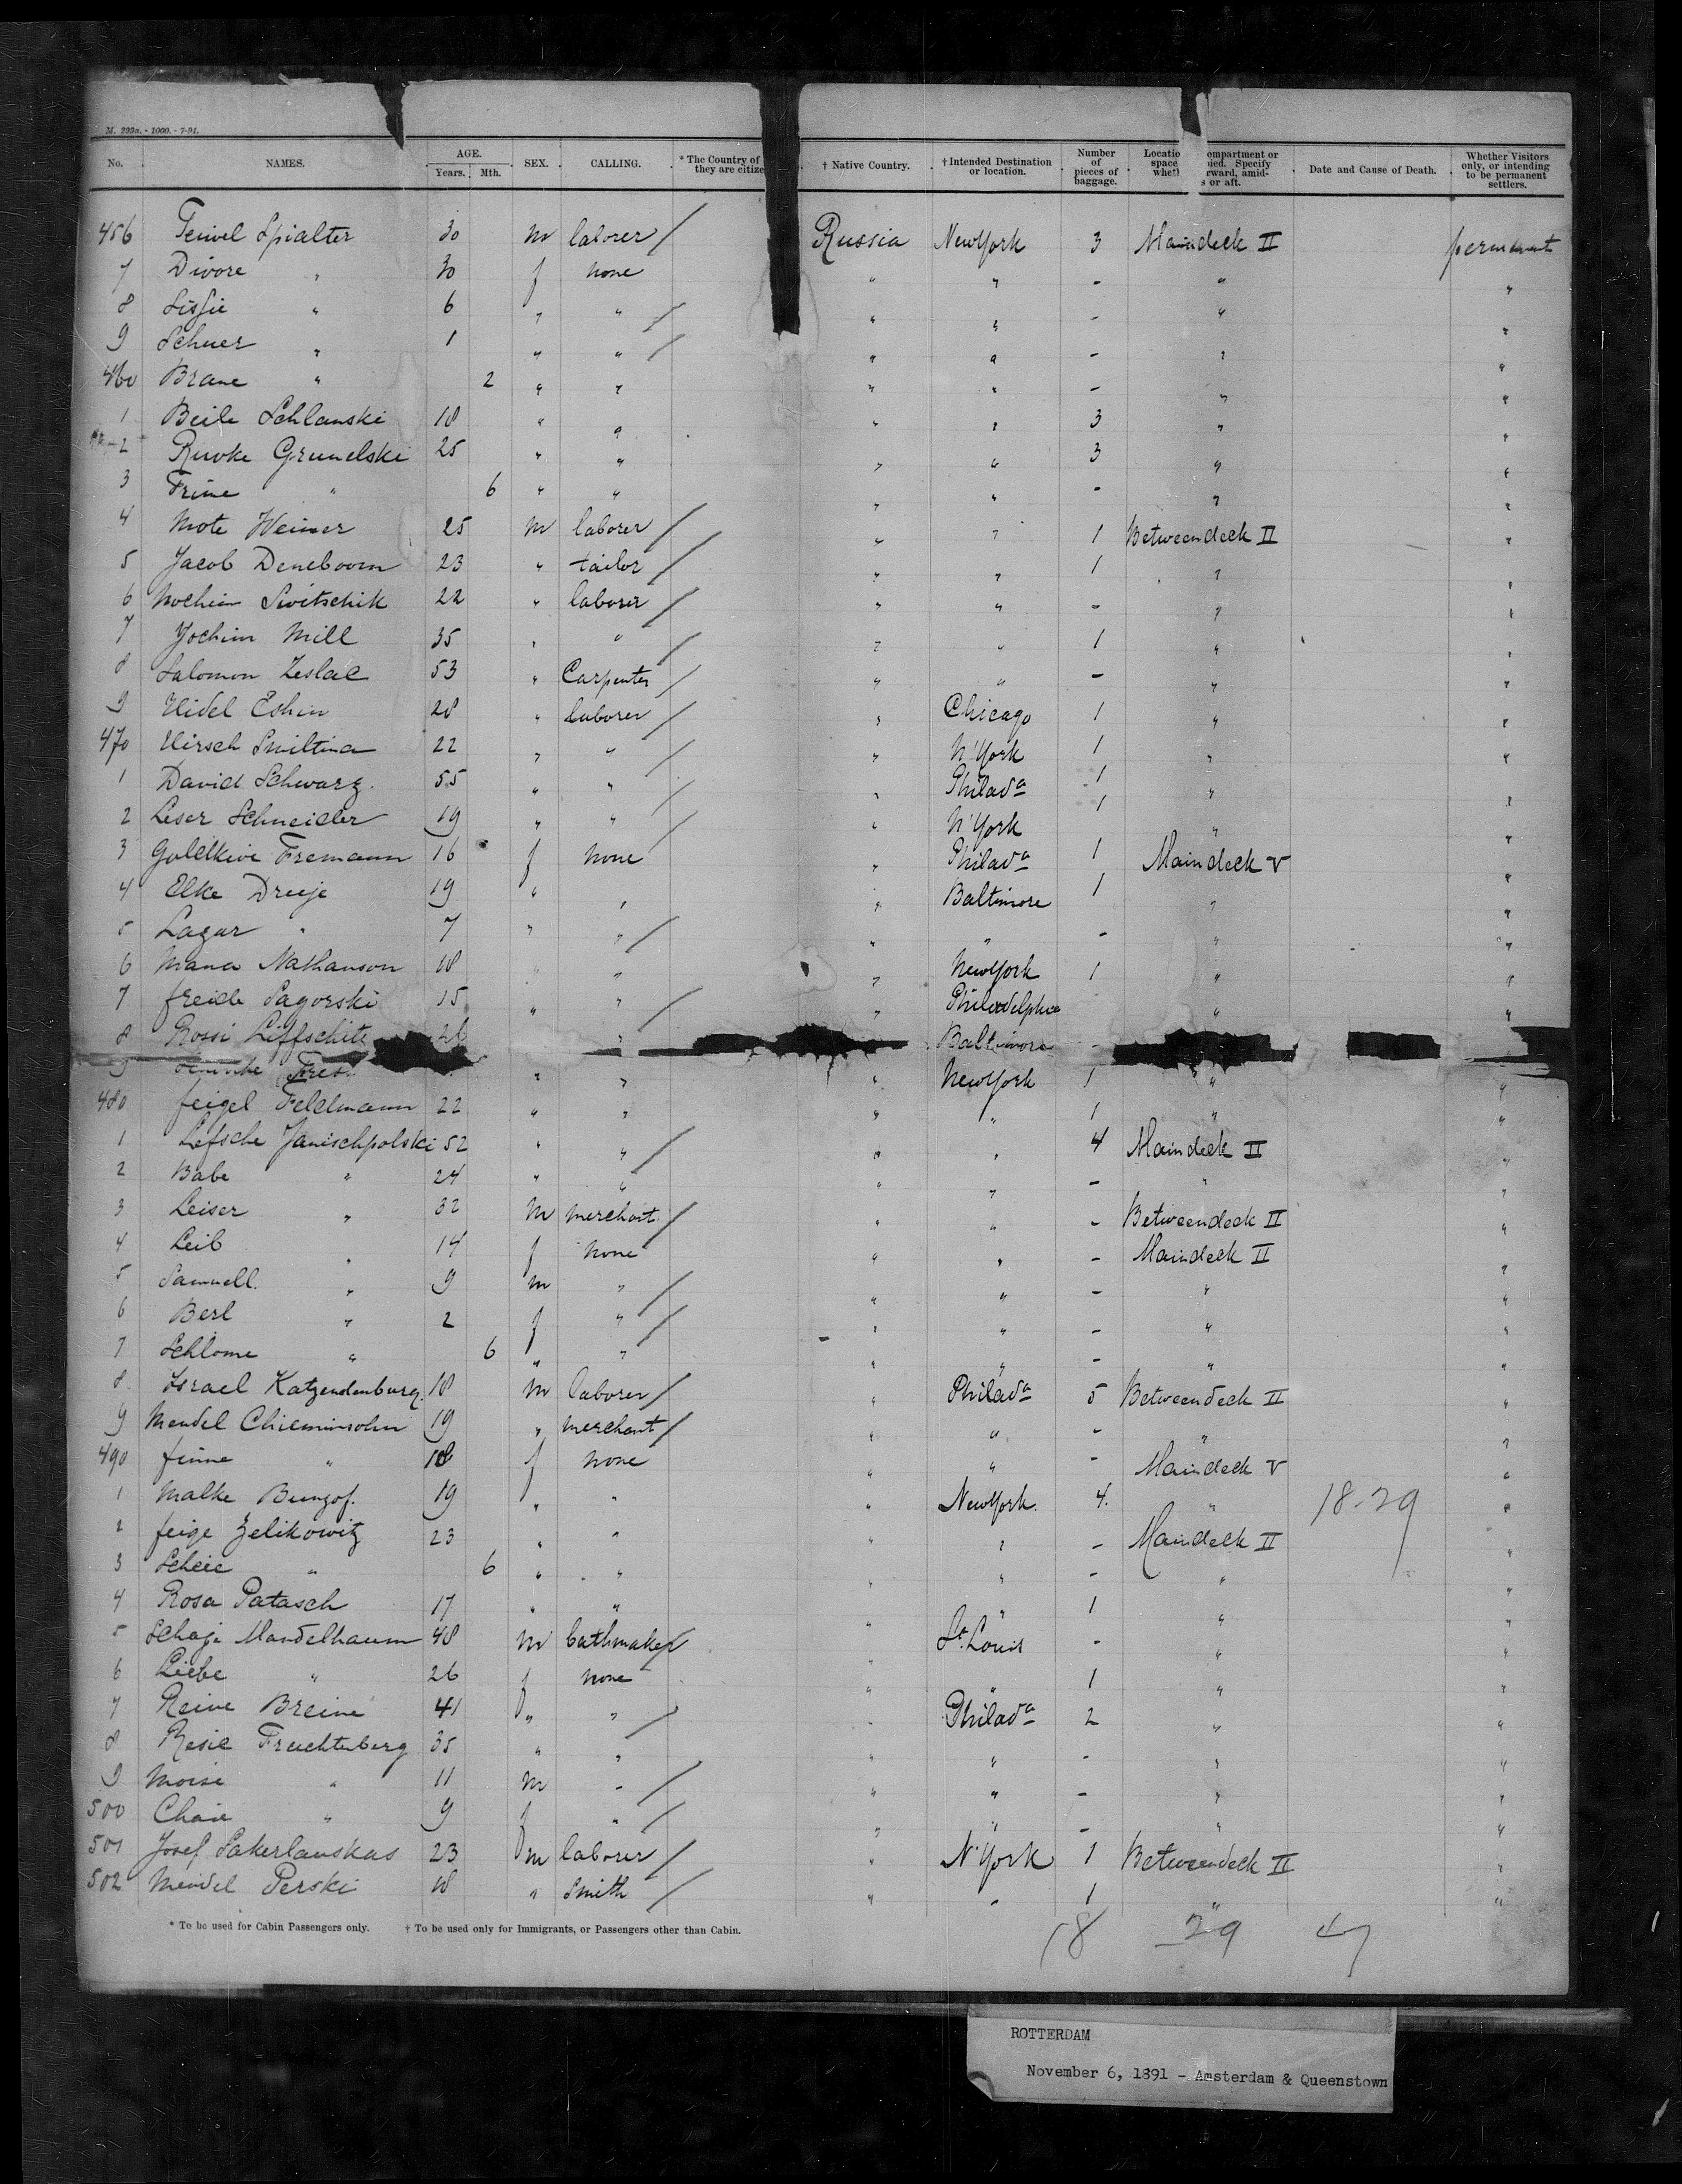 M. 299a. - 1000. - 7-91.
No. NAMES. AGE. Years. Mth. SEX. CALLING. * The Country of they are citize † Native Country. † Intended Destination or location. Number of pieces of baggage. Locatio space wheth ompartment or pied. Specify rward, amid- s or aft. Date and Cause of Death. Whether Visitors only, or intending to be permanent settlers.
456 Teiwel Spialter 30 m laborer / Russia New York 3 Maindeck II permanent
7 Divore " 30 f none " " - " "
8 " 6 " " / " " - " "
9 Schuer " 1 " " / " " - " "
460 Brane " 2 " " " " - " "
1 Beile Schlanski 18 " " " " 3 " "
2 Ruwke Grunelski 25 " " " " 3 " "
3 Frine " 6 " " " " - " "
4 Mote Weiner 25 m laborer / " " 1 Betweendeck II "
5 Jacob Deneboom 23 " tailor / " " 1 " "
6 Nochim Switschik 22 " laborer / " " - " "
7 Jochim Mill 35 " " / " " 1 " "
8 Salomon Leslac 53 " Carpenter / " " - " "
9 Hidel Eshin 28 " laborer / " Chicago 1 " "
470 Hirsch Smiltina 22 " " / " N'York 1 " "
1 David Schwarz. 55 " " / " Philada 1 " "
2 Leser Schneider 19 " " / " N'York 1 " "
3 Goldkive Fremann 16 f none " Philada 1 Maindeck V "
4 Elke Dreeje 19 " " " Baltimore 1 " "
5 Lazar " 7 " " / " " - " "
6 Mana Nathanson 18 " " " New York 1 " "
7 freide Sagorski 15 " " / " Philadelphia " "
8 Rossi Liffschitz 26 " Baltimore -
9 " " " New York 1 " "
480 feigel Feldmann 22 " " " " 1 " "
1 Lefsche Janischpolski 52 " " / " " 4 Maindeck II "
2 Babe " 24 " " " " - " "
3 Leiser " 32 m merchant / " " - Betweendeck II "
4 Leib " 14 f none " " - Maindeck II "
5 Samuell. " 9 m " / " " - " "
6 Berl " 2 f " / " " - " "
7 Schlome " 6 " " " " - " "
8 Israel Katzendenburg. 18 m laborer / " Philada 5 Betweendeck II "
9 Mendel Chieminsohn 19 " merchant / " " - " "
490 finne " 18 f none " " - Maindeck V "
1 Malke Bunzof. 19 " " " New York. 4. " 18-29 "
2 feige Zelikowitz 23 " " " " - Maindeck II "
3 Scheie " 6 " " " " - " "
4 Rosa Patasch 17 " " " " 1 " "
5 Schaje Mandelbaum 48 m / " St. Louis - " "
6 Liebe " 26 f none " " 1 " "
7 Reive Breine 41 " " " Philada 2 " "
8 Resie Fruchtenberg 35 " " / " " - " "
9 Moise " 11 m " / " " - " "
500 Chaie " 9 f " / " " - " "
501 Josef Sakerlauskas 23 m laborer / " N'York 1 Betweendeck II "
502 Mendel Perski 18 " Smith / " " 1 " "
* To be used for Cabin Passengers only. † To be used only for Immigrants, or Passengers other than Cabin.
18 29 47
ROTTERDAM
November 6, 1891 - Amsterdam & Queenstown